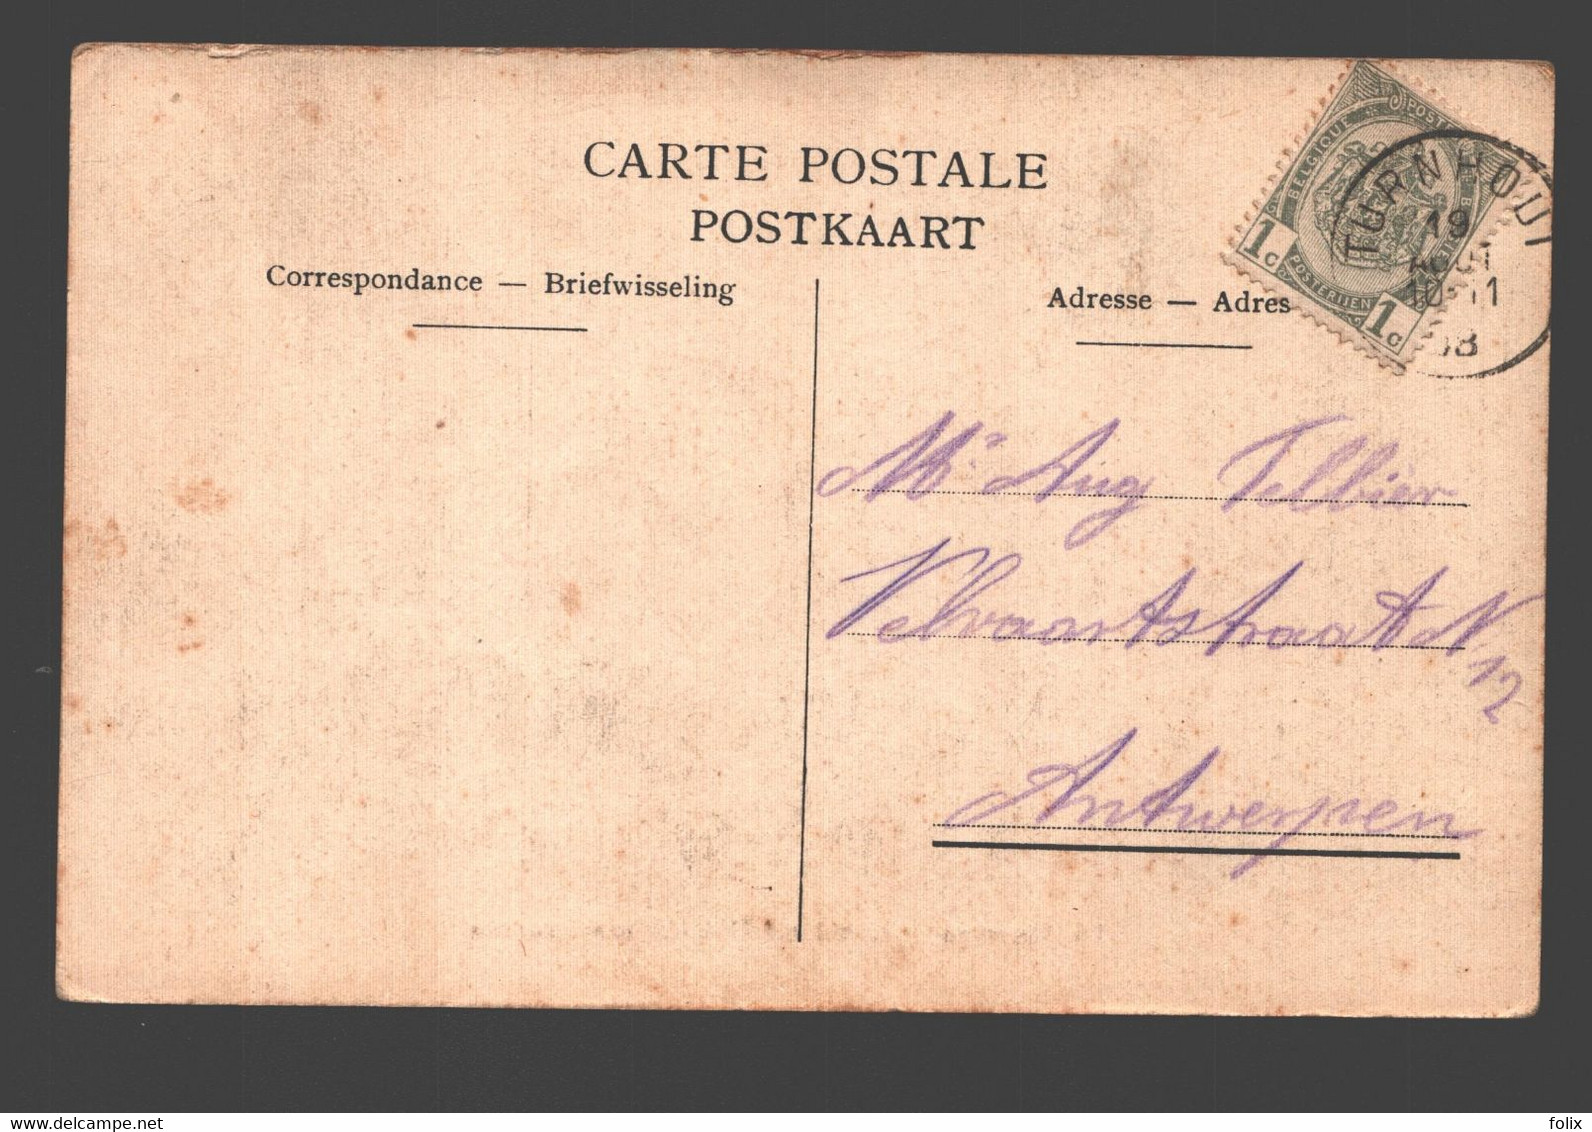 CARTE POSTALE
POSTKAART
Correspondance — Briefwisseling
Adresse — Adres
BELGIQUE POSTES
1c POSTERIJEN 1c
TURNHOUT
19
AOUT
10-11
08
Mr Aug Tellier
Velvaartstraat N
12
Antwerpen
delcampe.net
folix